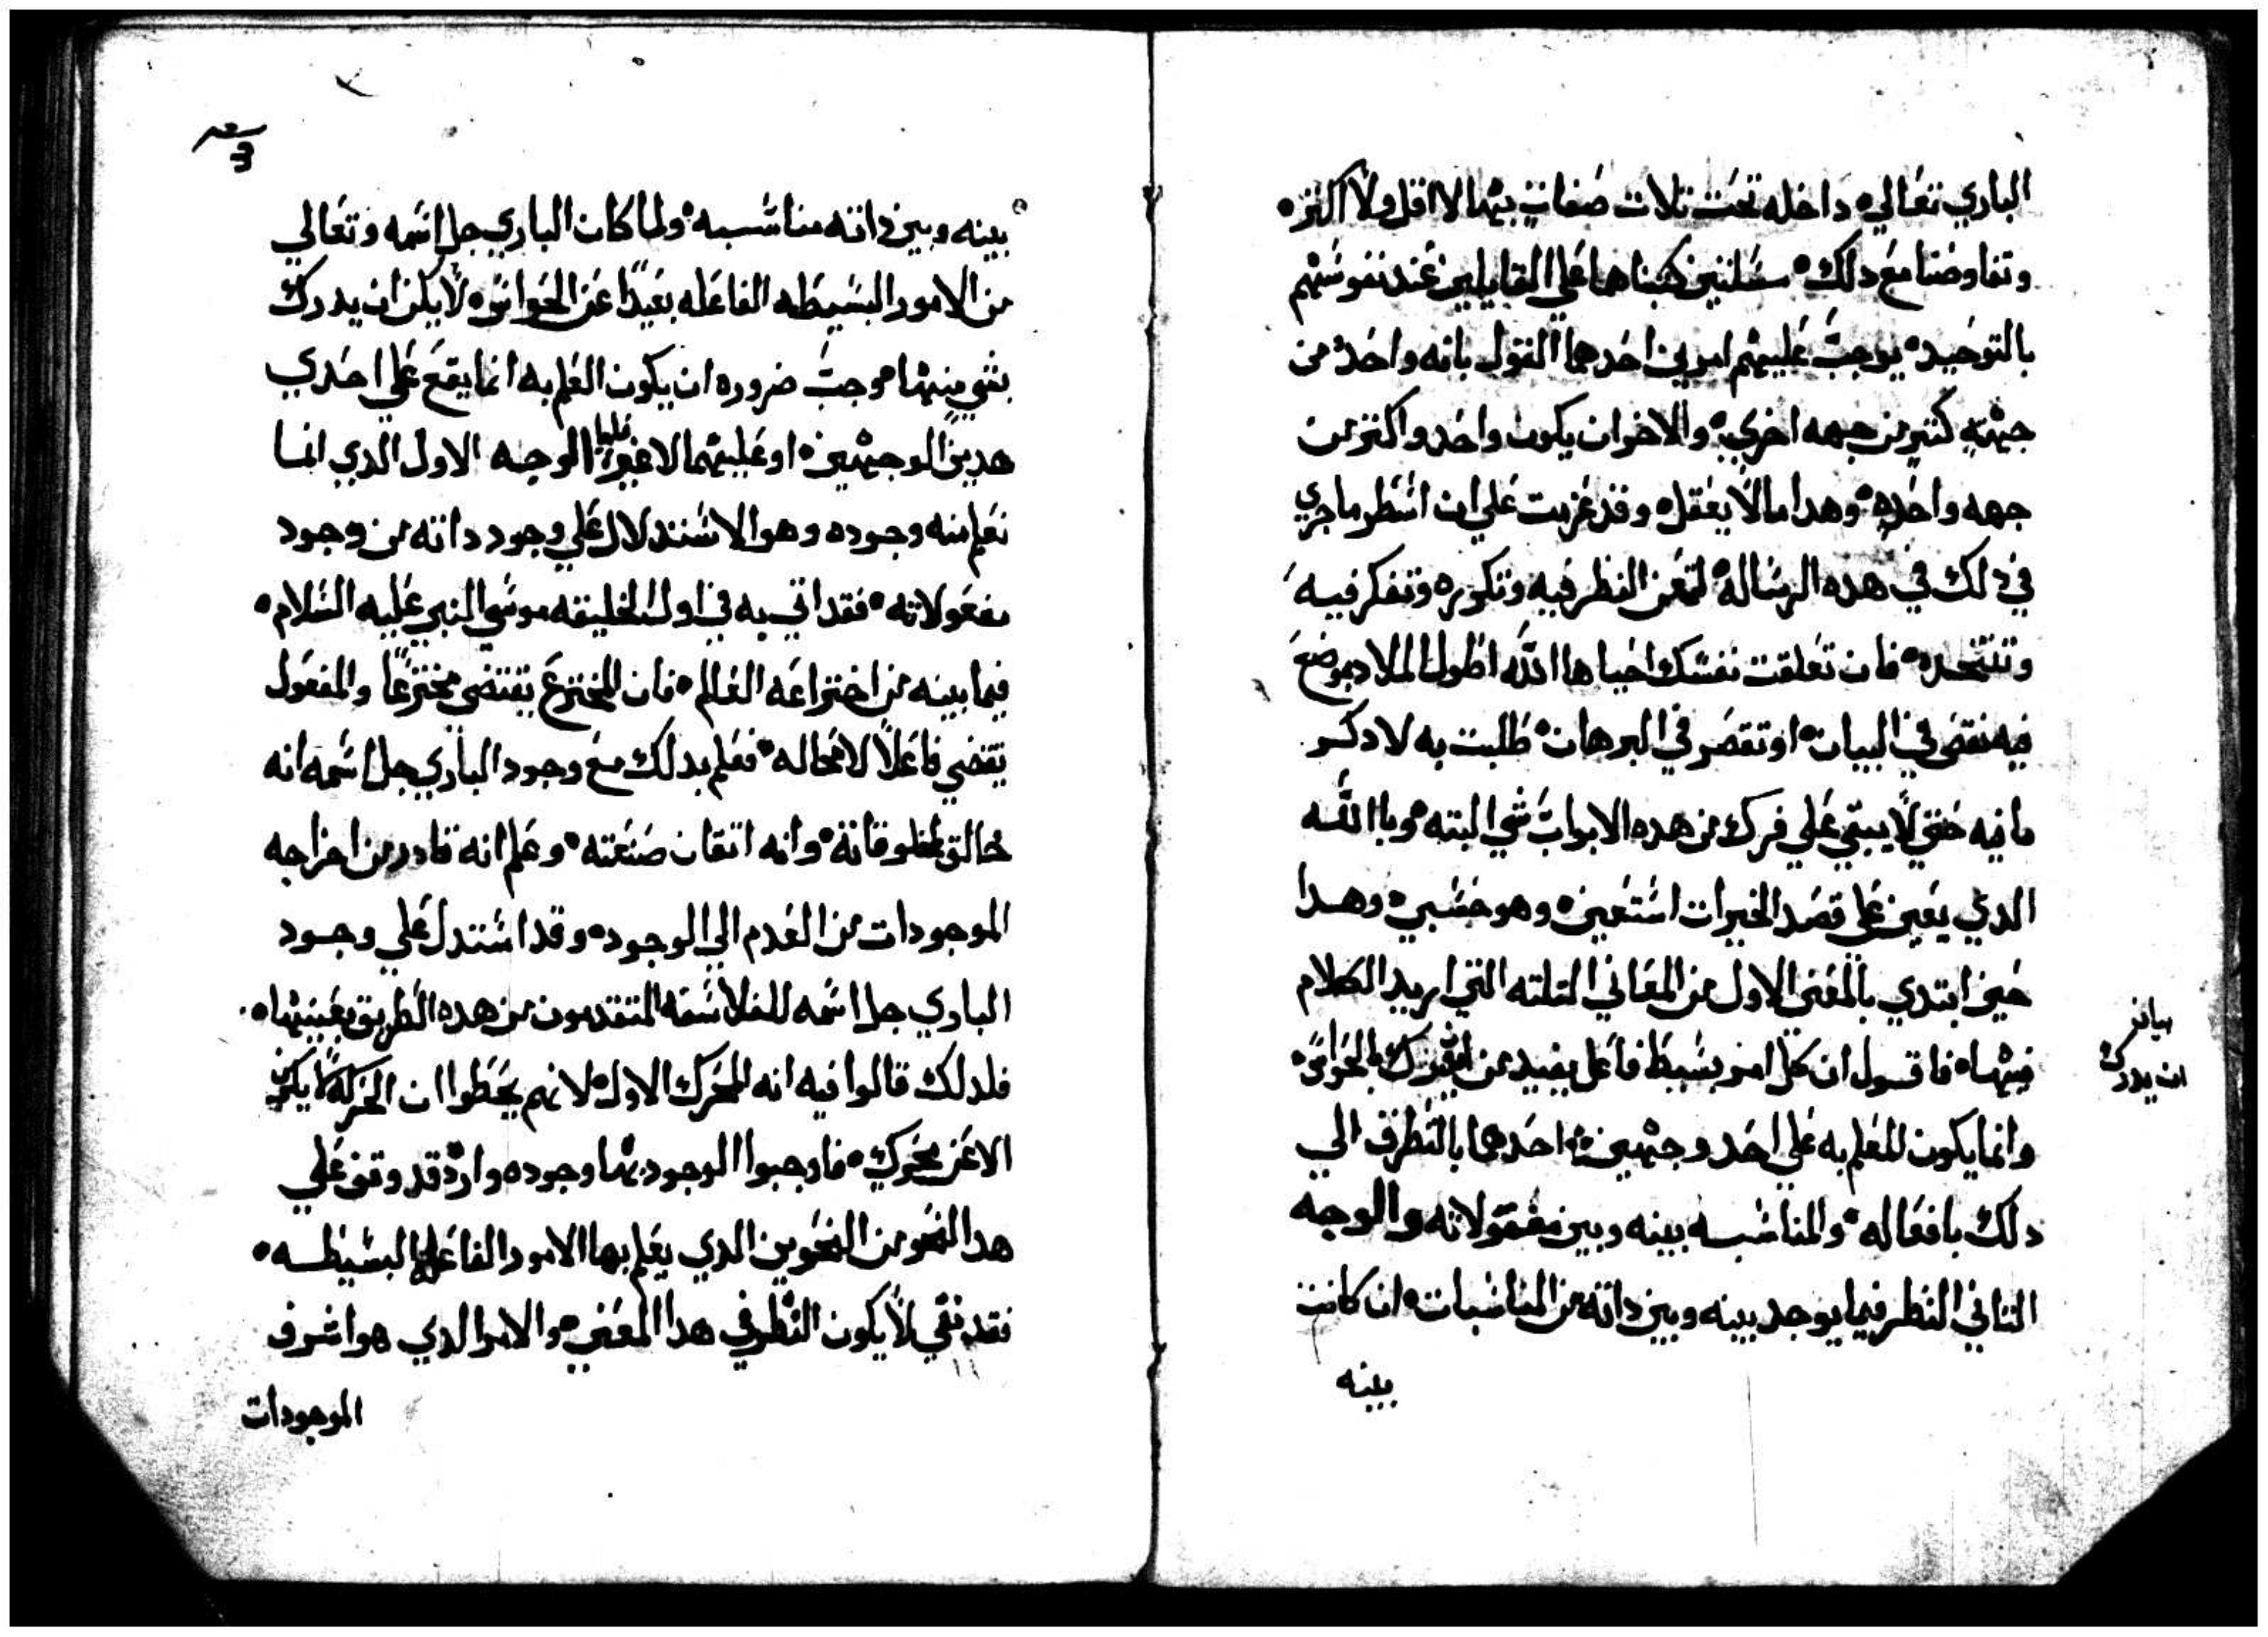 الباري تعالي داخله تحت تلات صفات بتها لا اقل ولا اكتر
وتفاوضنا مع دلك سلتين كتبناها علي القايلين عند نفوسهم
بالتوحيد يوجب عليهم امرين احدهما القول بانه واحد من
جهته كتير من جهه اخري والاخر ان يكون واحد واكتر من
جهه واحده وهدا ما لا يعقل وقد عزمت علي ان اسطر ما جري
في دلك في هده الرساله لتمعن النظر فيه وتكوره وتفكر فيه
فان تعلقت نفسك احياها الله اطول الملاد بموضع
فيه نقص في البيان او تقصر في البرهان طلبت به لادكر
ما فيه حتي لا يبقي علي فكرك من هده الابواب شي البته وباالله
الدي يعين علي قصد الخيرات استعين وهو حسبي وهدا
حين ابتدي بالمعني الاول من المعاني التلته التي اريد الكلام
فيها فاقول ان كل امر بسيط فاعل بعيد من ان يدرك بالحواس
وانما يكون العلم به علي احد وجهين احدهما بالتطرف الي
دلك بافعاله والمناسبه بينه وبين مفعولاته والوجه
التاني النظر فيما يوجد بينه وبين داته من المناسبات ان كانت
بينه
بيانه
ان يدرك
3
بينه وبين داته مناسبه ولما كان الباري جل اسمه وتعالي
من الامور البسيطه الفاعله بعيدا عن الحواس لا يمكن ان يدرك
بشي منها وجب ضروره ان يكون العلم به انما يقع علي احدي
هدين الوجهين او عليهما لا غير فاما الوجه الاول الدي انما
نعلم منه وجوده وهو الاستدلال علي وجود داته من وجود
مفعولاته فقد اتي به في اول الخليقه موسي النبي عليه السلام
فيما بينه من اختراعه العالم فان المخترع يقتضي مخترعا والمفعول
يقضي فاعلا لا محاله فعلم بدلك مع وجود الباري جل اسمه انه
خالق لمخلوقاته وانه اتقان صنعته وعلم انه قادر من اخراجه
الموجودات من العدم الي الوجود وقد استدل علي وجود
الباري جل اسمه للفلاسفه المتقدمون من هده الطريق بعينها
فلدلك قالوا فيه انه المحرك الاول لانهم يحظوا ان الحركه لا يكون
الا عن محرك فاوجبوا الوجود بها وجوده واد قد وقف علي
هدا النحو من النحوين الدي يعلم بها الامور الفاعله البسيطه
فقد بقي لا يكون النظر في هدا المعني والامر الدي هو اشرف
الموجودات